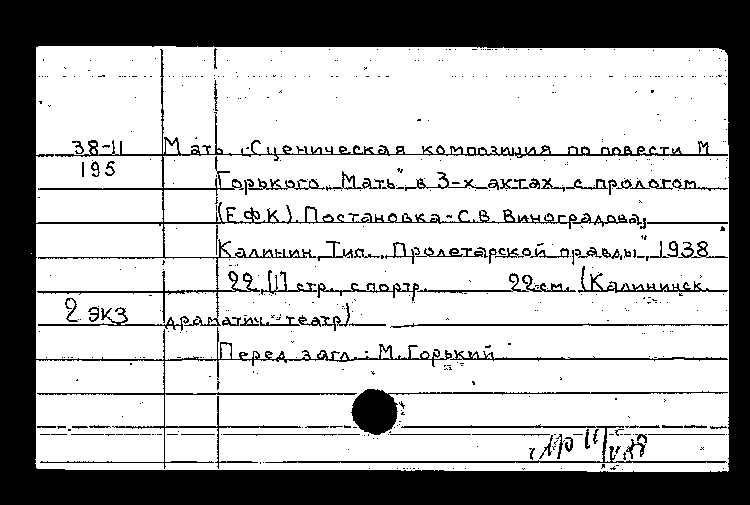 38-11 Мать. Сценическая композиция по повести М
195 Горького „Мать" в 3-х актах, с прологом
(Е.Ф.К.). Постановка - С.В. Виноградова;
Калинин, Тип. „Пролетарской правды", 1938
22, [1] стр., с портр. 22 см. (Калининск.
2 экз драматич. театр)
Перед загл.: М. Горький